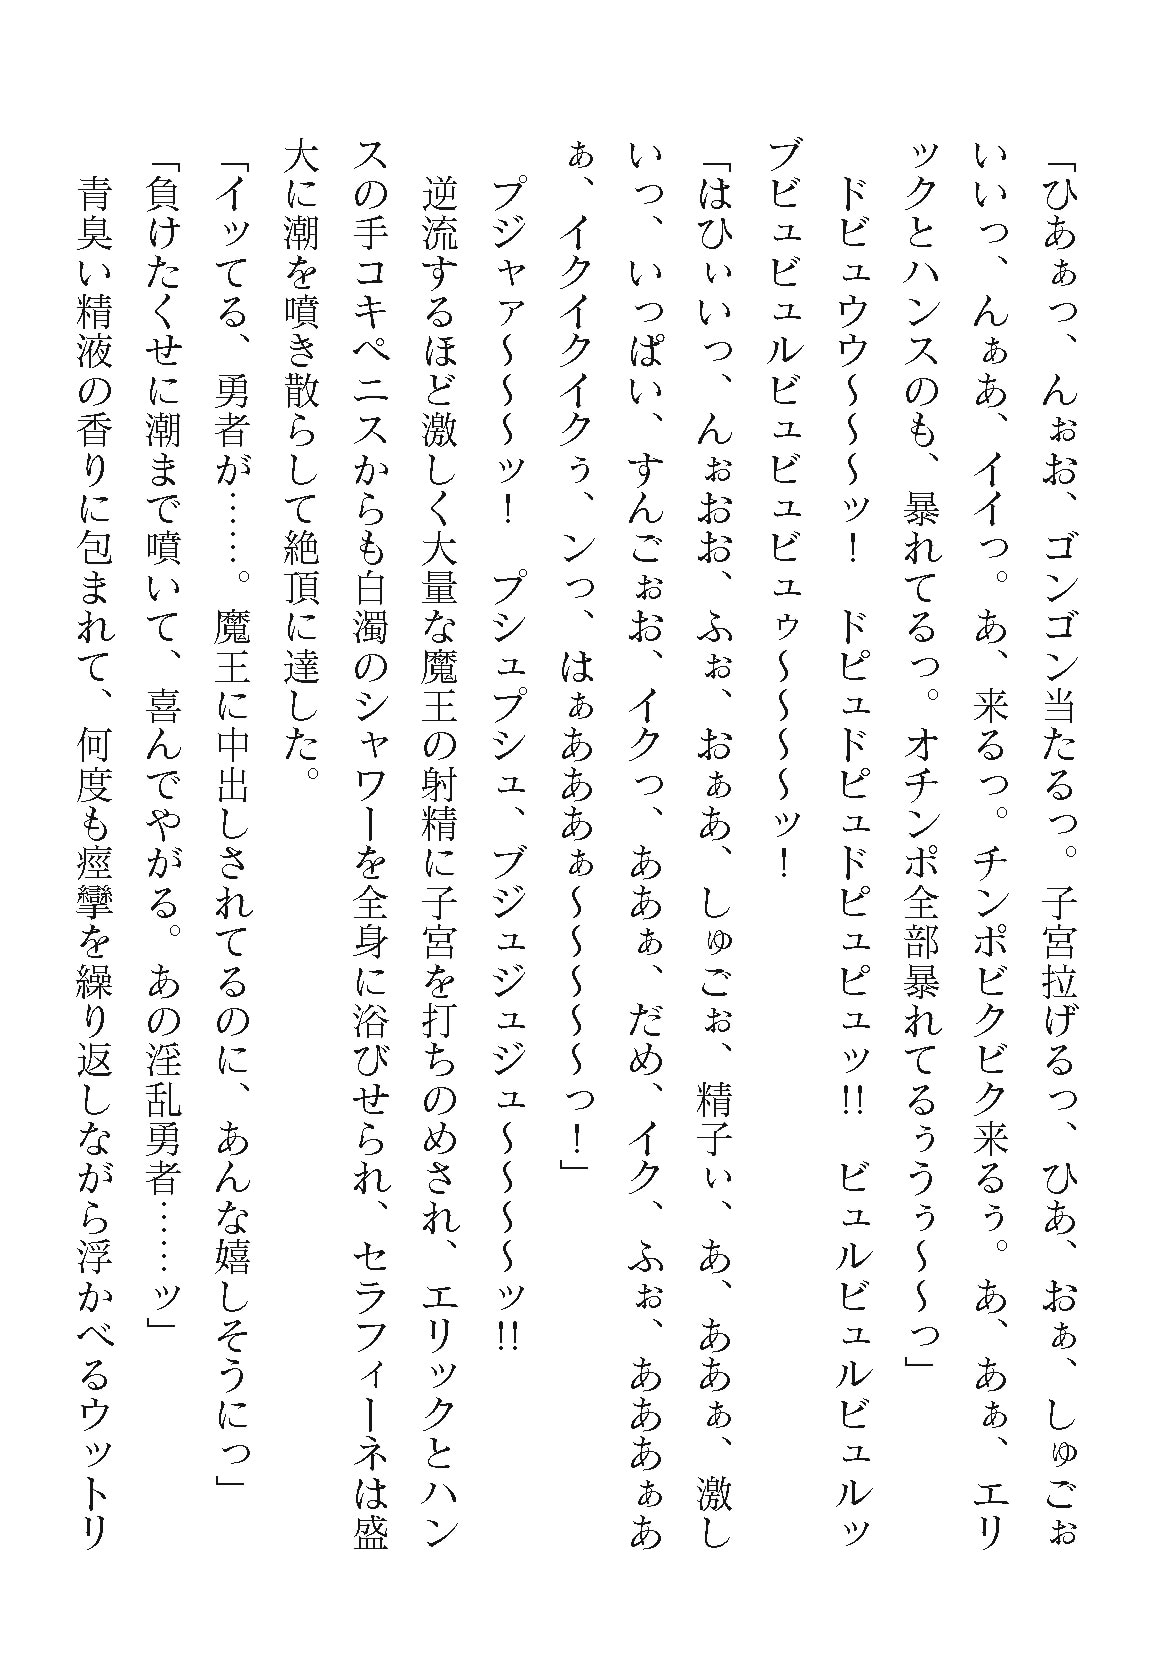 「ひあぁっ、んぉお、ゴンゴン当たるっ。子宮拉げるっ、ひあ、おぁ、しゅごぉ
いいっ、んぁあ、イイっ。あ、来るっ。チンポビクビク来るぅ。あ、あぁ、エリ
ックとハンスのも、暴れてるっ。オチンポ全部暴れてるぅうぅ～～っ」
　ドビュウウ～～～ッ！　ドピュドピュドピュピュッ!!　ビュルビュルビュルッ
ブビュビュルビュビュビュゥ～～～～ッ！
「はひぃいっ、んぉおお、ふぉ、おぁあ、しゅごぉ、精子ぃ、あ、ああぁ、激し
いっ、いっぱい、すんごぉお、イクっ、ああぁ、だめ、イク、ふぉ、あああぁあ
ぁ、イクイクイクぅ、ンっ、はぁあああぁ～～～～～っ！」
　プジャァ～～～ッ！　プシュプシュ、ブジュジュジュ～～～～ッ!!
　逆流するほど激しく大量な魔王の射精に子宮を打ちのめされ、エリックとハン
スの手コキペニスからも白濁のシャワーを全身に浴びせられ、セラフィーネは盛
大に潮を噴き散らして絶頂に達した。
「イッてる、勇者が……。魔王に中出しされてるのに、あんな嬉しそうにっ」
「負けたくせに潮まで噴いて、喜んでやがる。あの淫乱勇者……ッ」
　青臭い精液の香りに包まれて、何度も痙攣を繰り返しながら浮かべるウットリ